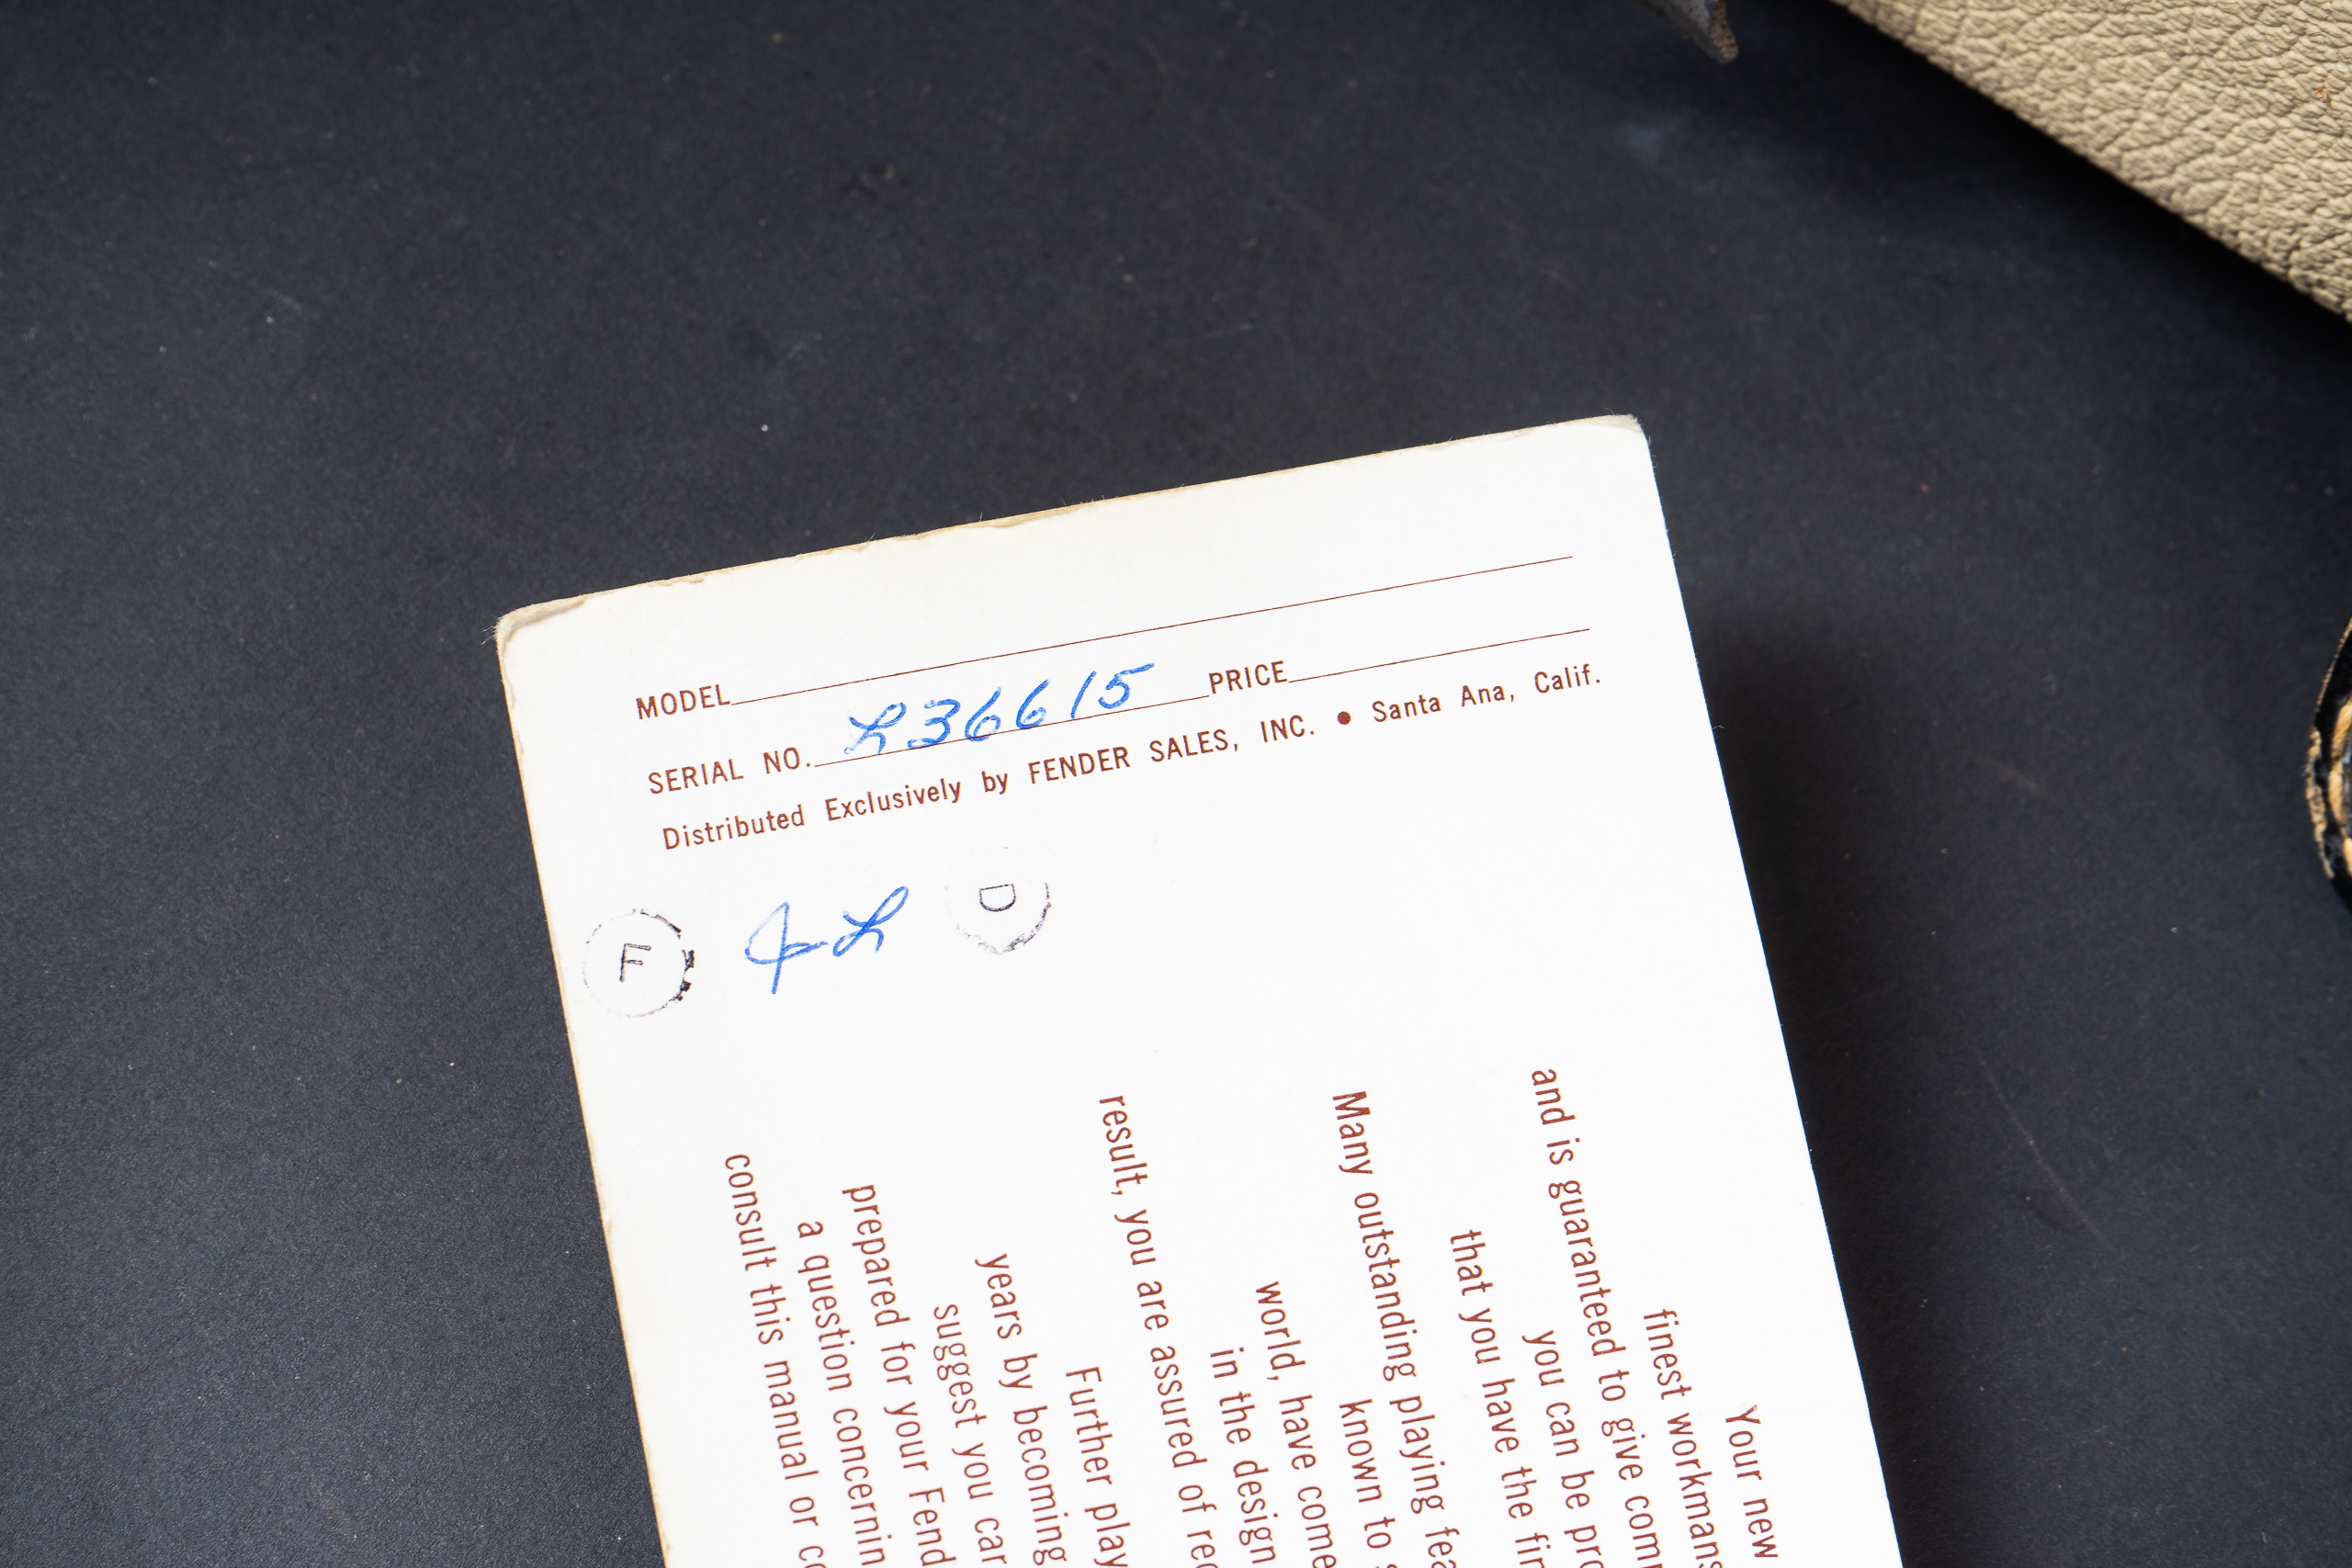 MODEL
SERIAL NO. L36615 PRICE
Distributed Exclusively by FENDER SALES, INC. • Santa Ana, Calif.
F
D
Your new
finest workmans
and is guaranteed to give com
you can be pro
that you have the fin
Many outstanding playing fea
known to s
world, have come
in the design
result, you are assured of rec
Further play
years by becoming
suggest you car
prepared for your Fend
a question concernin
consult this manual or co